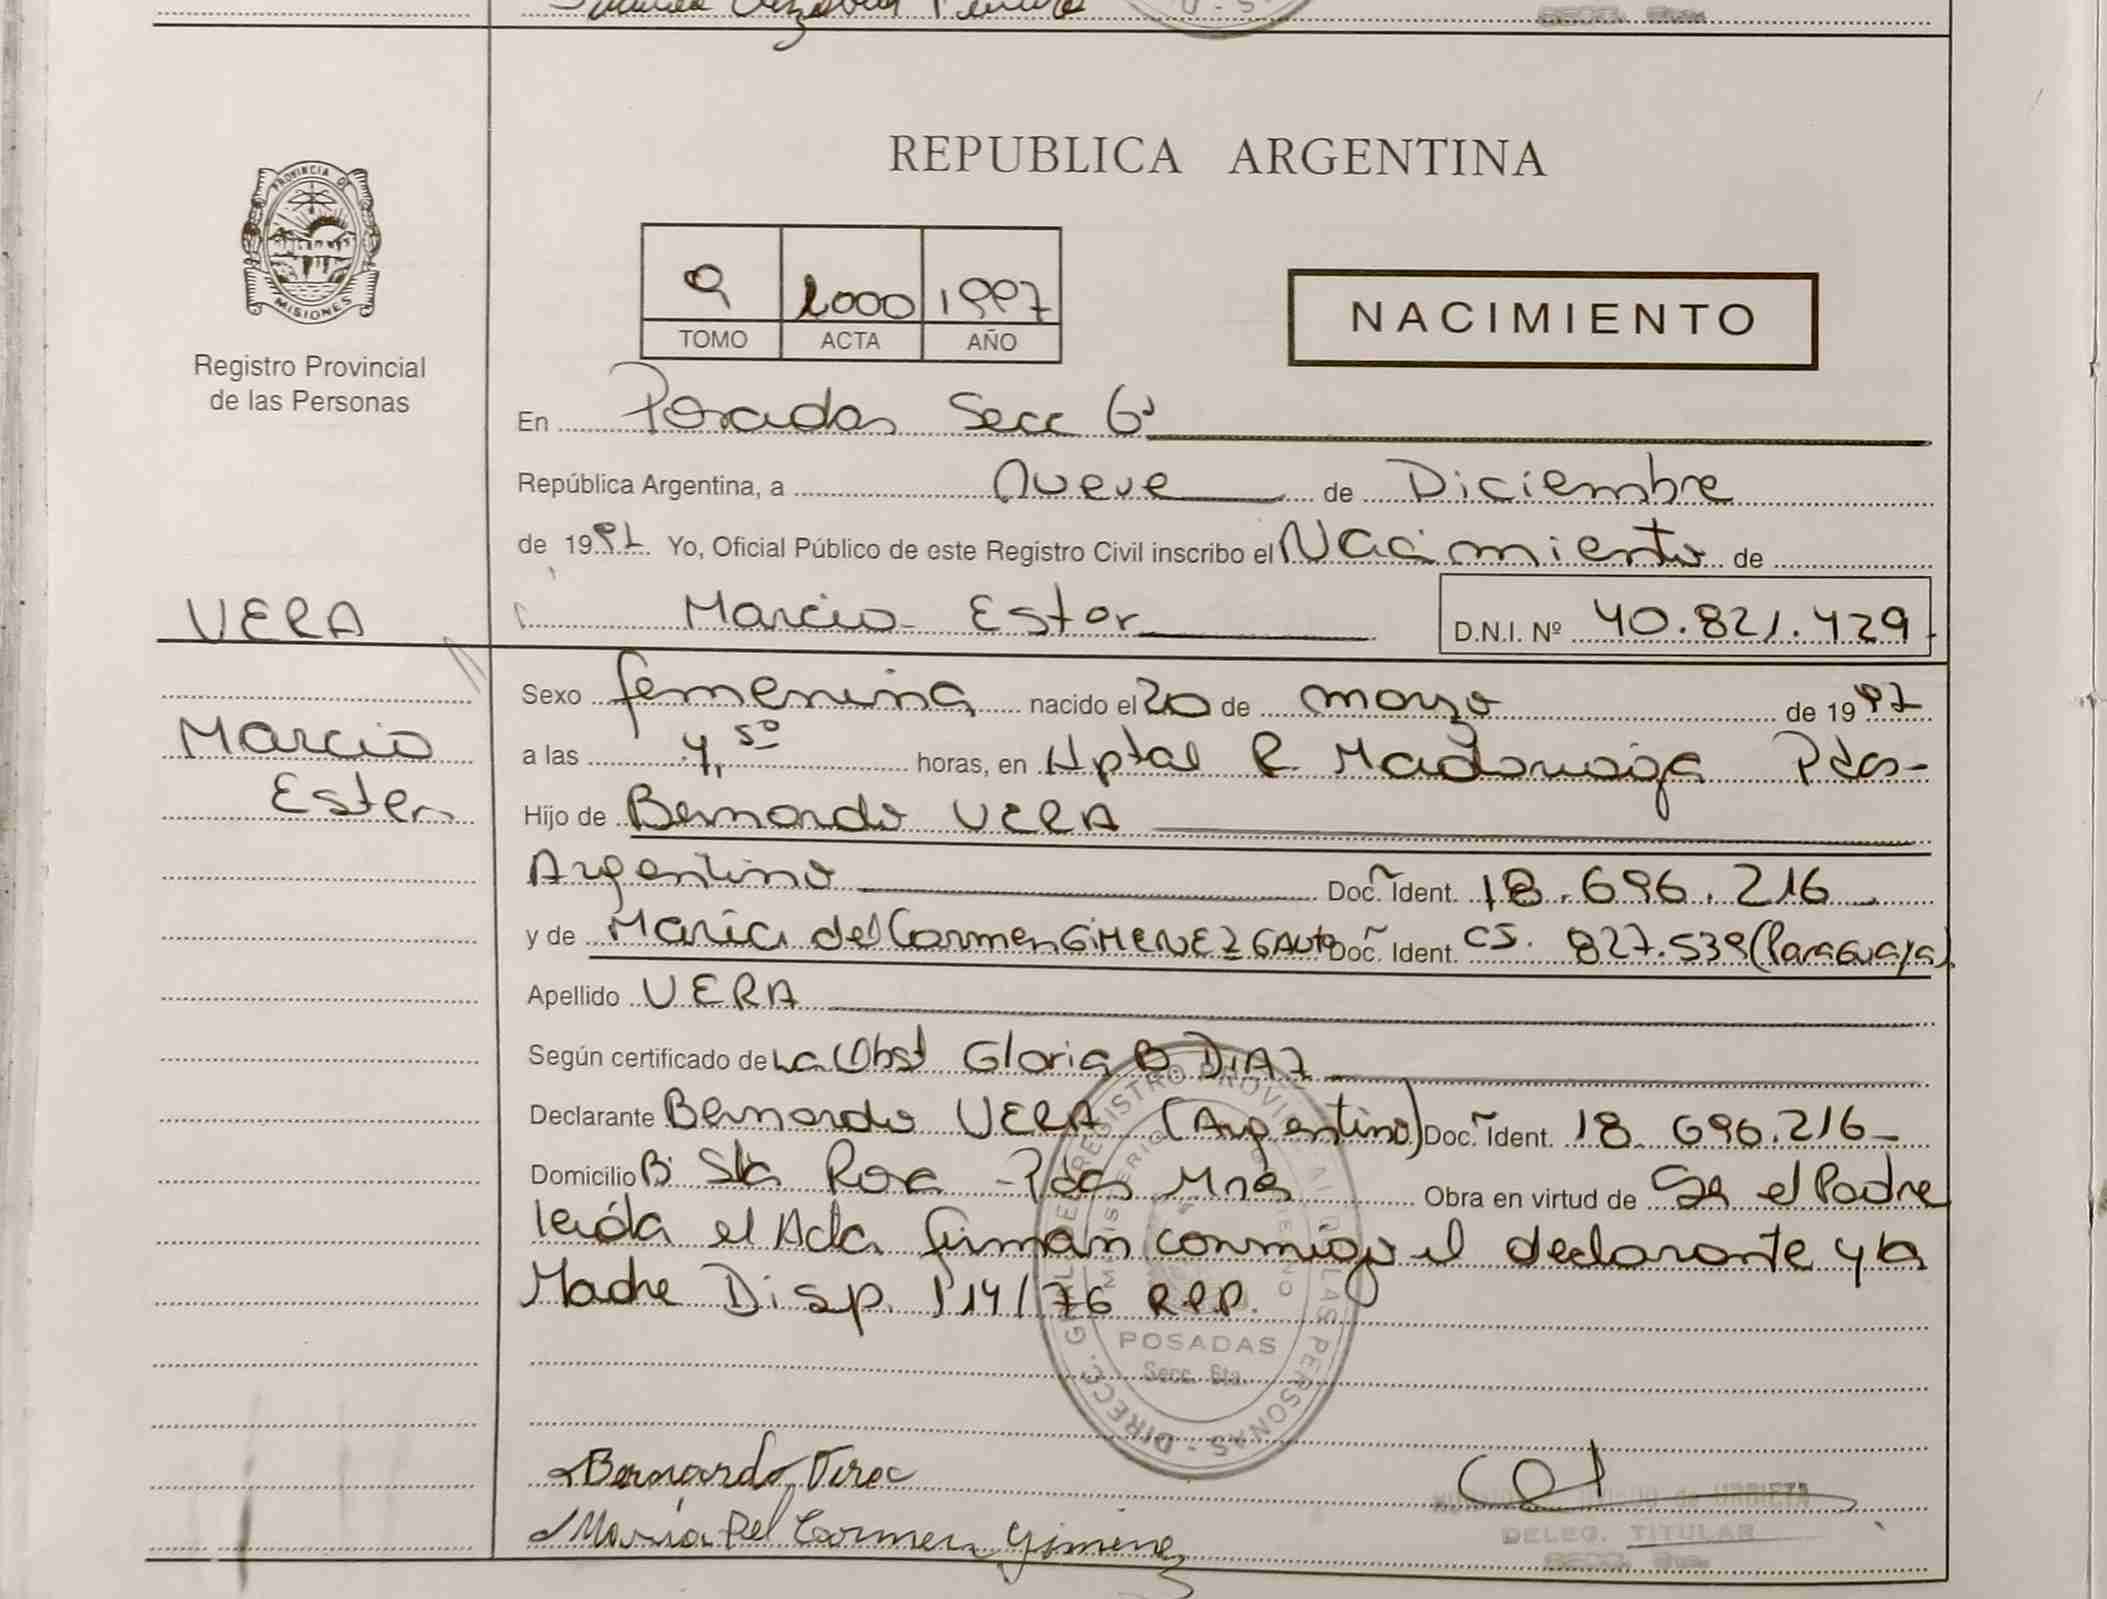 REPUBLICA ARGENTINA
PROVINCIA DE
MISIONES
Registro Provincial
de las Personas
9 1000 1997
TOMO ACTA AÑO
NACIMIENTO
En Posadas Secc 6ª
República Argentina, a nueve de Diciembre
de 1997 Yo, Oficial Público de este Registro Civil inscribo el Nacimiento de
VERA
Marcia Ester D.N.I. Nº 40.821.429
Sexo femenina nacido el 20 de marzo de 1997
Marcia
Ester
a las 4,50 horas, en Hptal R Madariaga Pdas-
Hijo de Bernardo VERA
Argentino Doc. Ident. 18.696.216
y de Maria del Carmen GIMENEZ GAUTO Doc. Ident. CS. 827.539 (Paraguaya)
Apellido VERA
Según certificado de La Obst Gloria B DIAZ
Declarante Bernardo VERA (Argentino) Doc. Ident. 18 696.216-
Domicilio Bº Sta Rosa -Pdas Mnes Obra en virtud de Ser el Padre
leida el Acta firman conmigo el declarante y la
Madre Disp. 114/76 R.P.P.
DIRECC. GRAL DE REGISTRO PROVINCIAL DE LAS PERSONAS
POSADAS
Secc. 6ta.
Bernardo Vera
María Del Carmen Gimenez
de URRIETA
DELEG. TITULAR
SECC. 6ta.